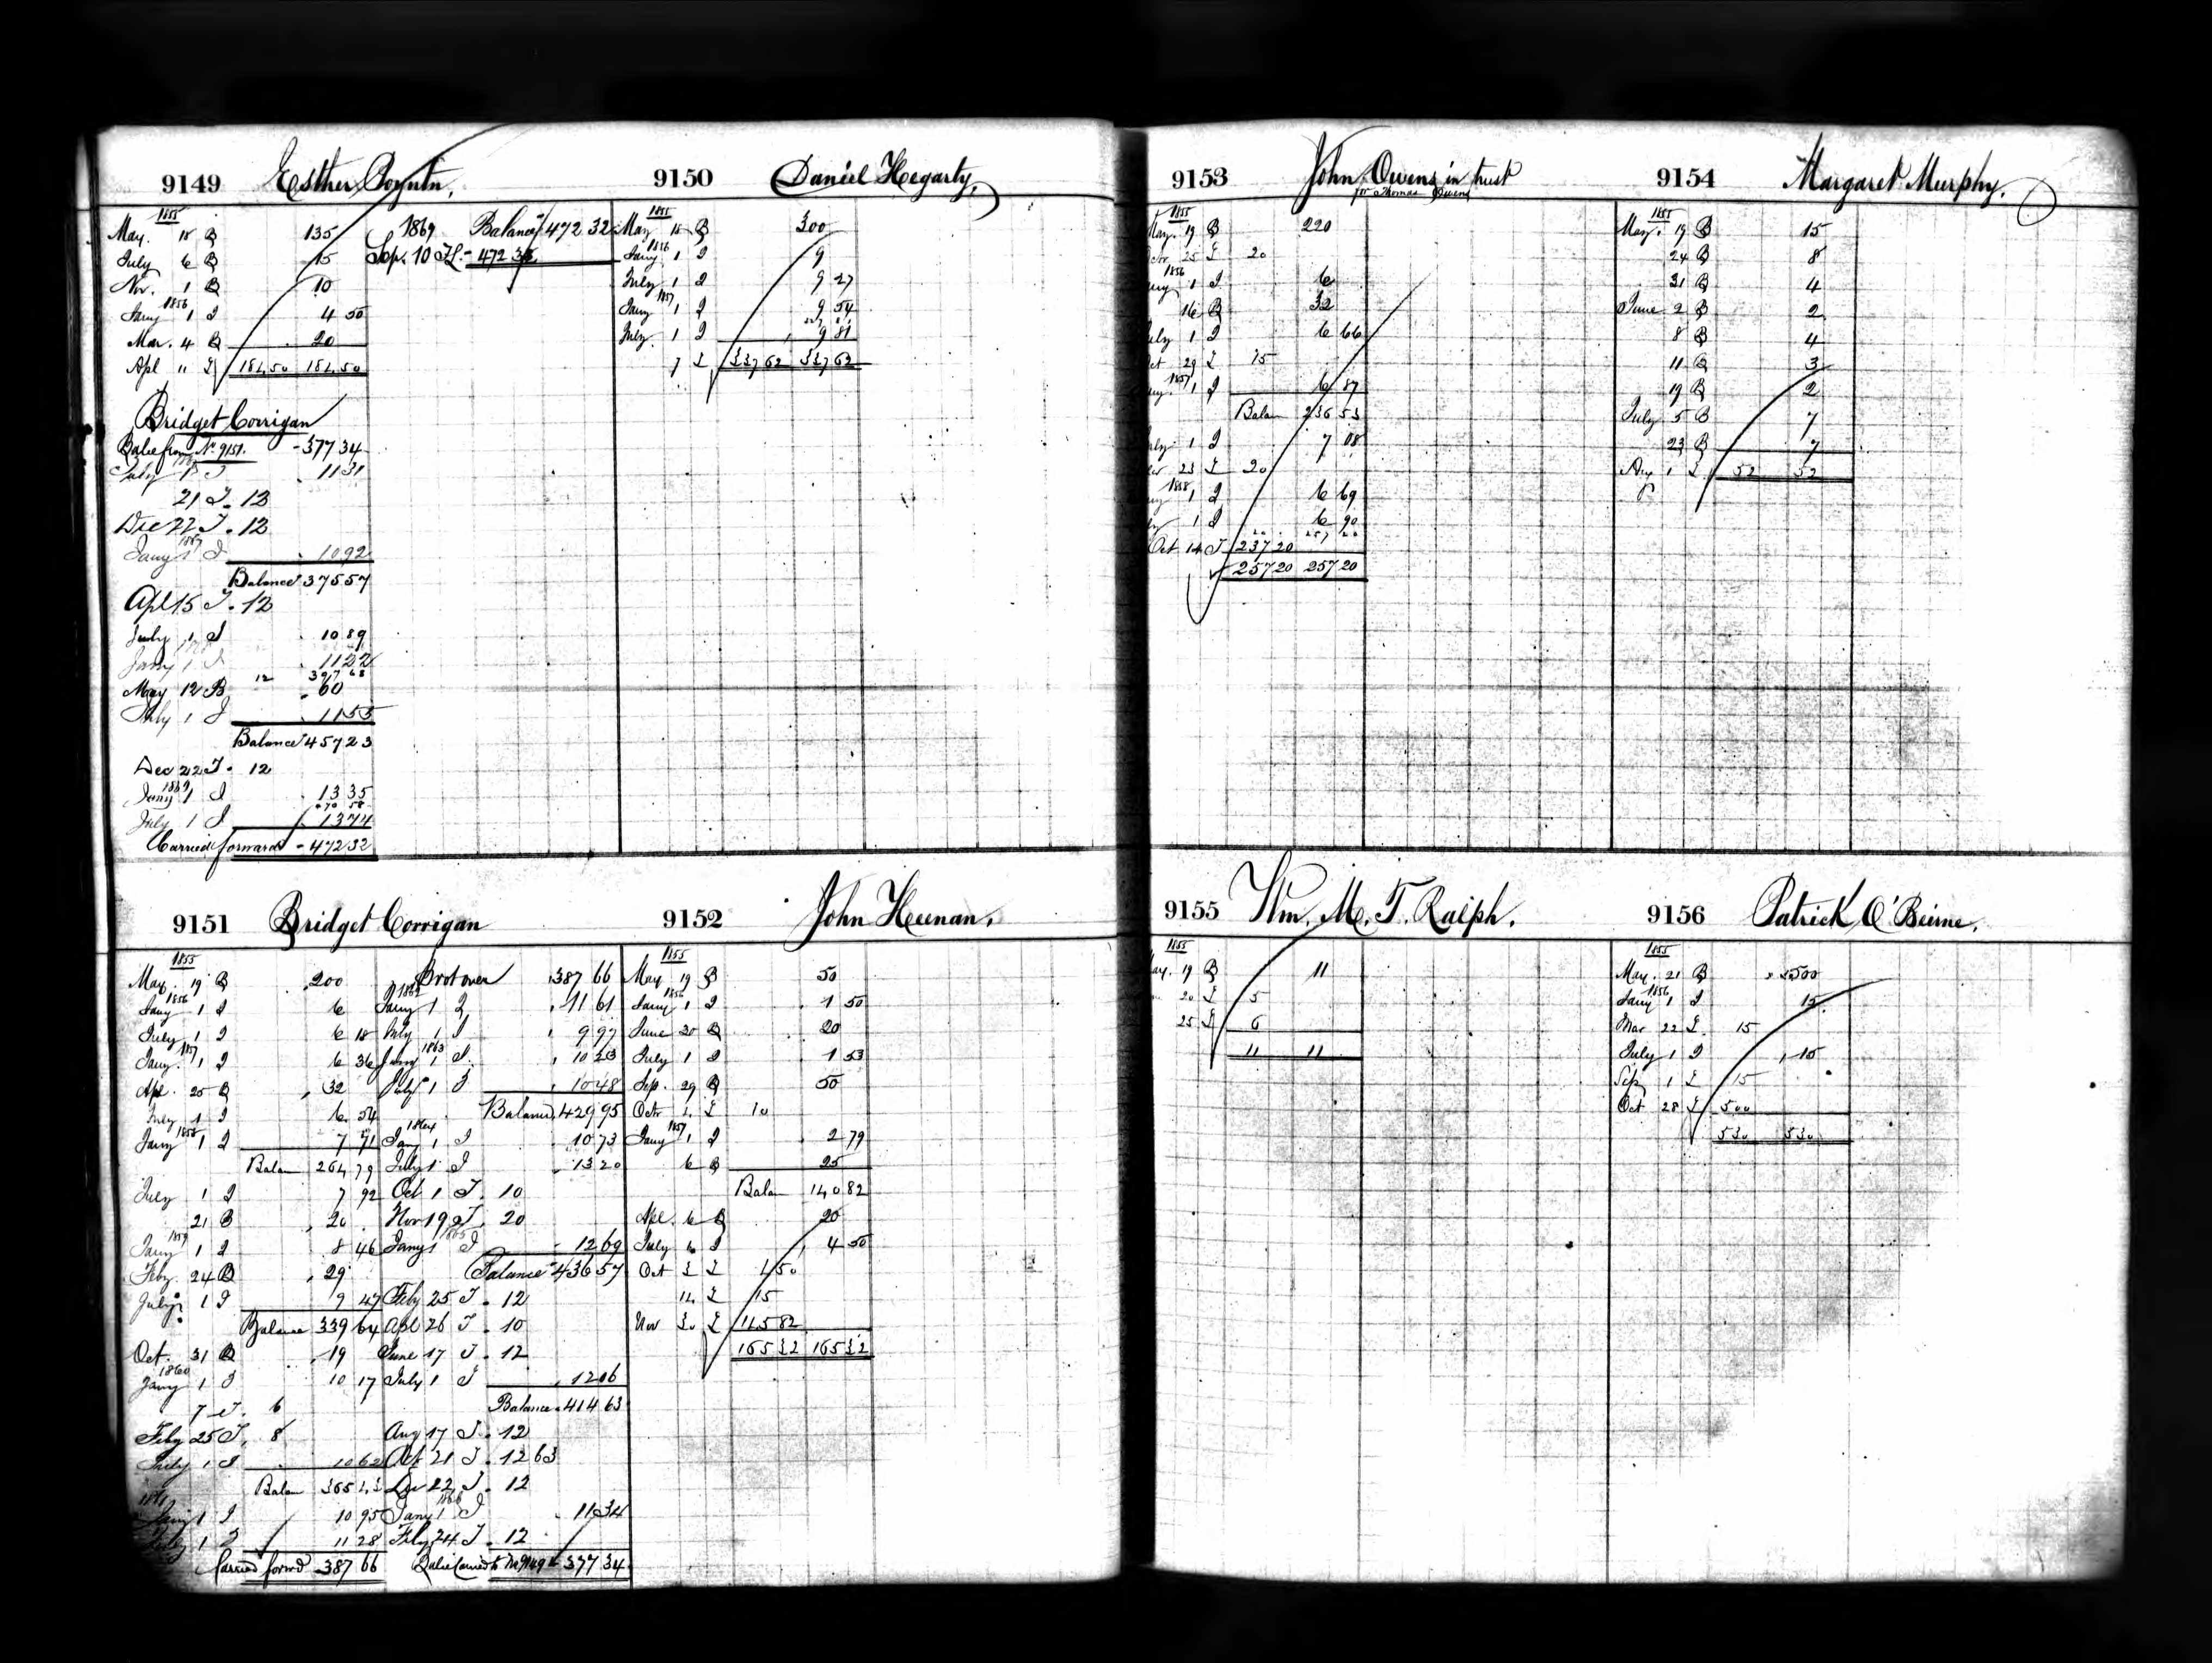 9149 Esther Poynton.
1855
May. 18 B 135
July 6 B 15
Nov. 1 B 10
1856
Jany 1 I 4 50
Mar. 4 B 20
Apl " £ 184,50 184,50
Bridget Corrigan
Balce from No 9151. - 377 34
July 1 I 11 31
21 T. 12
Dec 22 T. 12
1867
Jany 1 I 10 92
Balance 375 57
Apl 15 T. 12
July 1 I 10 89
Jany 1 I 11 22
12 397 68
May 12 B 60
July 1 I 11 55
Balance 457 23
Dec 22 T. 12
1869
Jany 1 I 13 35
July 1 I 13 74
Carried forward - 472 32
1869 Balance 472 32
Sep. 10 - 472 32
9150 Daniel Hegarty,
1855
May 18 B 300
1856
Jany 1 I 9
July 1 I 9 27
1857
Jany 1 I 9 54
July. 1 I 9 81
7 £ 337 62 337 62
9151 Bridget Corrigan
1855
May. 19 B 200
1856
Jany 1 I 6
July 1 I 6 18
1857
Jany. 1 I 6 36
Apl. 25 B 32
July 1 I 6 54
1858
Jany 1 I 7 71
Balan 264 79
July 1 I 7 92
21 B 20
1859
Jany 1 I 8 46
Feby. 24 B 29
July 1 I 9 47
Balance 339 64
Oct. 31 B 19
1860
Jany 1 I 10 17
7 T. 6
Feby 25 T. 8
July 1 I 10 62
Balan 365 43
1861
Jany 1 I 10 95
July 1 I 11 28
Carried forwd - 387 66
Brot over 387 66
1862
Jany 1 I 11 61
July 1 I 9 97
1863
Jany 1 I 10 23
July 1 I 10 48
Balance 429 95
1864
Jany 1 I 10 73
July 1 I 13 20
Oct 1 T. 10
Nov 19 T. 20
1865
Jany 1 I 12 69
Balance 436 57
Feby 25 T. 12
Apl 26 T. 10
June 17 T. 12
July 1 I 12 06
Balance 414 63
Aug 17 T. 12
Oct 21 T. 12 63
Dec 22 T. 12
1866
Jany 1 I 11 34
Feby 24 T. 12
Balce Carried to No 9149 - 377 34
9152 John Heenan.
1855
May 19 B 50
1856
Jany 1 I 1 50
June 20 B 20
July 1 I 1 53
Sep. 29 B 50
Octr £ 10
1857
Jany 1 I 2 79
6 B 25
Balan 140 82
Apl. 6 B 20
July I 4 50
Oct 3 £ 4 50
14 £ 15
Nov 30 £ 145 82
165 32 165 32
9153 John Owens in trust
for Thomas Owens
1855
May. 19 B 220
25 £ 20
1856
1 I 6
16 B 32
July 1 I 6 66
Oct 29 £ 15
1857
1 I 6 87
Balan 236 53
July 1 I 7 08
23 £ 20
1858
1 I 6 69
1 I 6 90
20 257 20
Oct 14 T 237 20
257 20 257 20
9154 Margaret Murphy.
1855
May. 19 B 15
24 B 8
31 B 4
June 2 B 2
8 B 4
11 B 3
19 B 2
July 5 B 7
23 B 7
Aug 1 £ 52 52
9155 Wm. M. T. Ralph.
1855
May. 19 B 11
20 £ 5
25 £ 6
11 11
9156 Patrick O'Beirne.
1855
May. 21 B 500
1856
Jany 1 I 15
Mar 22 £ 15
July 1 I 15
Sep 1 £ 15
Oct 28 £ 500
530 530